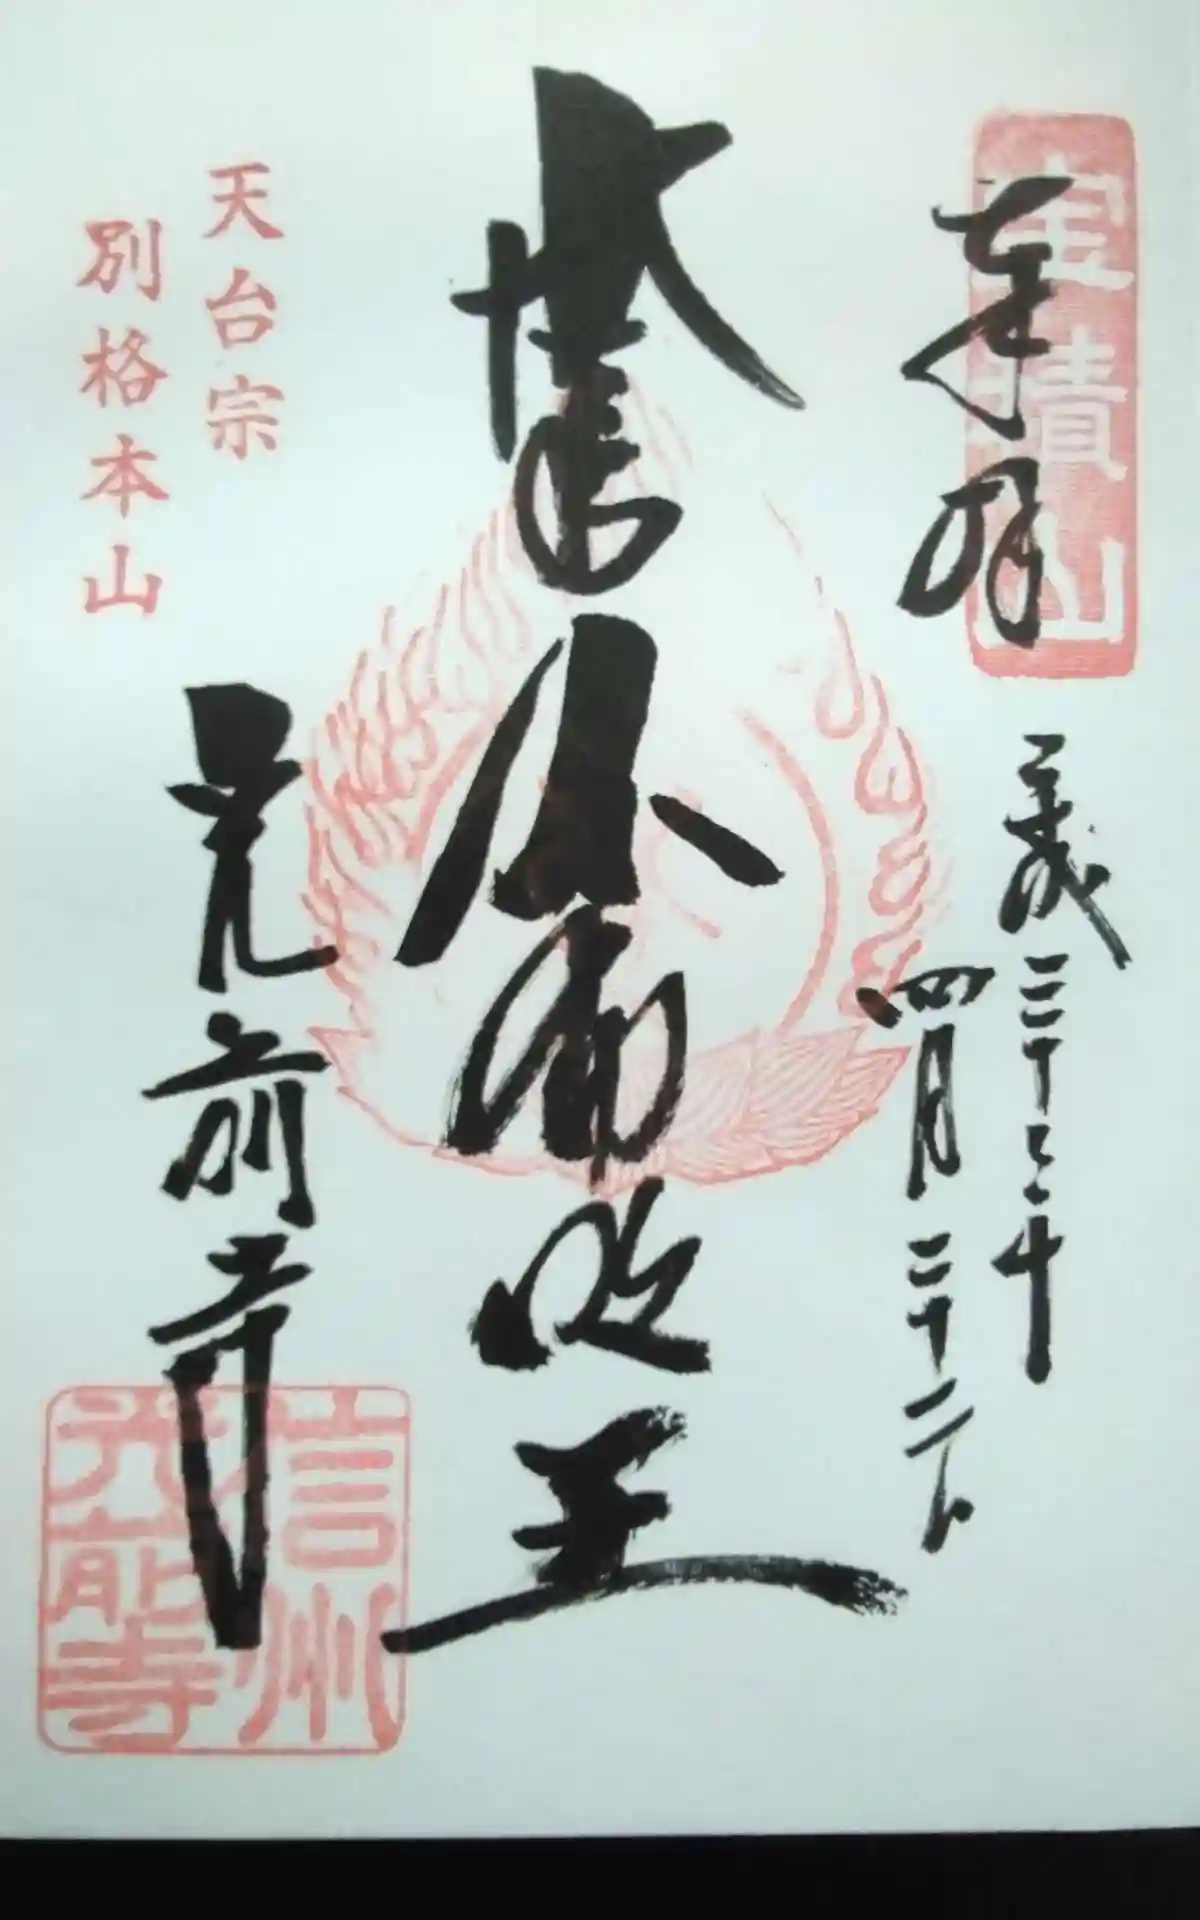 宝積山
奉拝
平成二十三年
四月二十二日
不動明王
天台宗
別格本山
光前寺
信州
光前寺